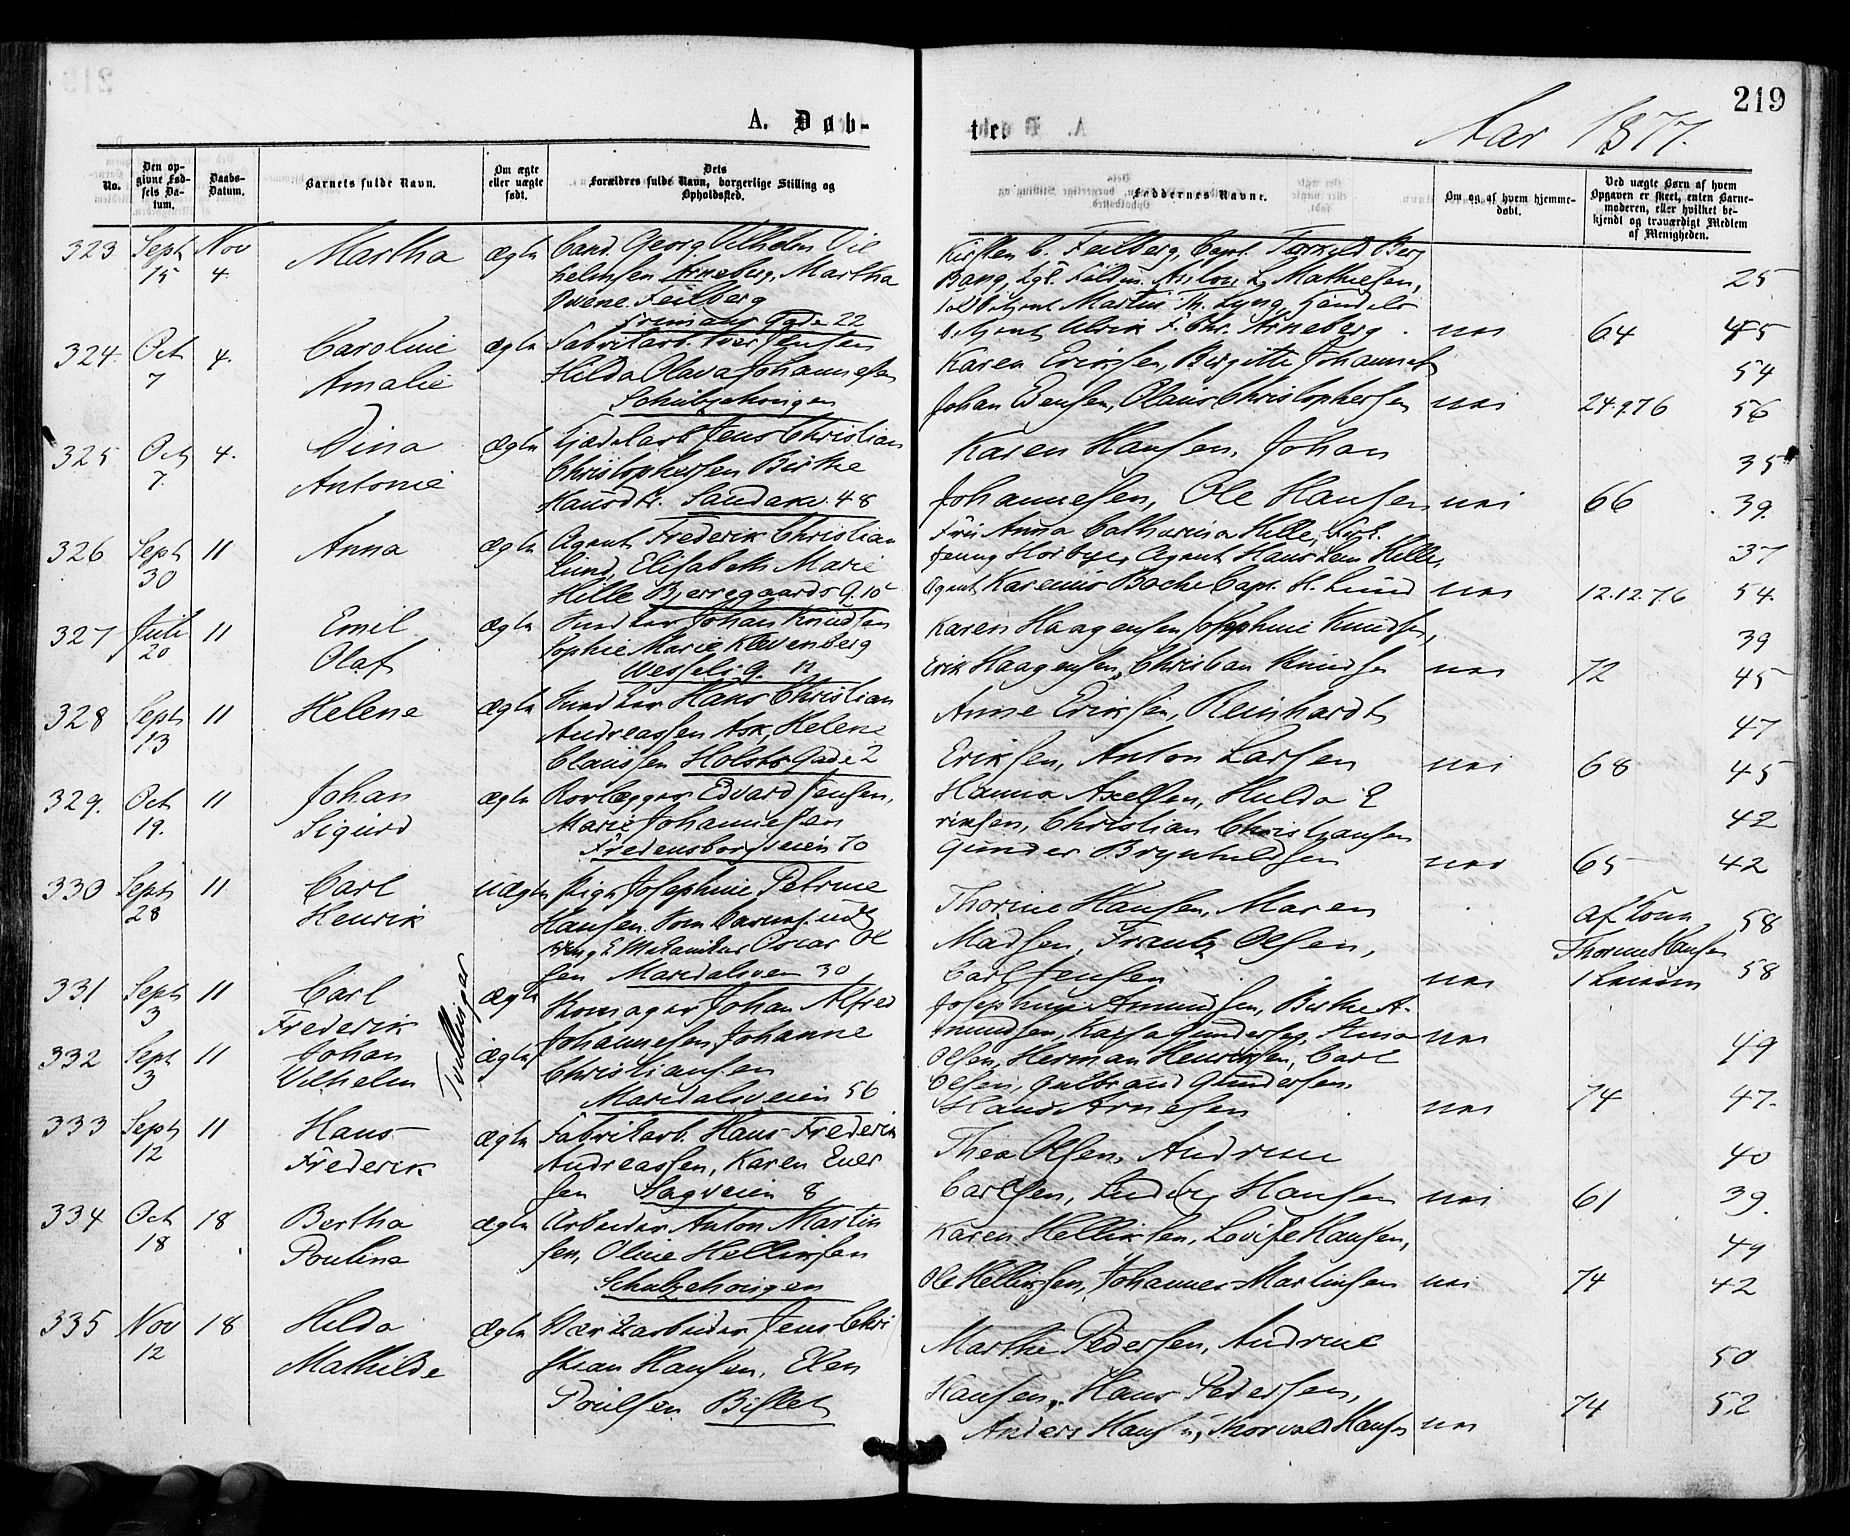 219
A. Døb-
te.
Aar 1877.
No.
Den op-
givne Fød-
sels Da-
tum.
Daabs-
Datum.
Barnets fulde Navn.
Om ægte
eller uægte
født.
Dets
Forældres fulde Navn, borgerlige Stilling og
Opholdssted.
Faddernes Navne.
Om og af hvem hjemme-
døbt.
Ved uægte Børn af hvem
Opgaven er skeet, enten Barne-
moderen, eller hvilket be-
kjendt og troværdigt Medlem
af Menigheden.
323 Sept 15 Nov 4. Martha ægte
Cand. Georg Vilhelm Vil
helmsen Arneberg, Martha
Irene Feilberg
22
Kirsten C. Feilberg, Capt.
Bang, Anton L. Mathiesen,
Martin Lyng, Handels
F. Chr. Arneberg. nei 64
25
45
324. Oct 7 4. Caroline Amalie ægte
Fabrikarb. Iver Jensen
Hilda Olava Johannesen
Schubzehougen
Karen Eriksen, Birgitte Johannes
Johan Evensen, Olaus Christophersen nei 24.9.76
54
56
325 Oct 7. 4. Dina Antonie ægte
Jens Christian
Christophersen Birthe
Hansdtr. Sandakv 48
Karen Hansen, Johan
Johannesen, Ole Hansen nei 66
35
39.
326 Sept 30 11 Anna ægte
Agent Frederik Christian
Lund, Elisabeth Marie
Hille Bjerregaards G. 10
Anna Catharina Hille,
Agent Hans Lem Hille,
Agent Karenius Boche Capt. H. Lund nei 12.12.76
37
54.
327 Juli 20 11 Emil Olaf ægte
Johan Knudsen
Sophie Marie Klevenberg
Wessels G. 12
Karen Haagensen Josephine Knudsen,
Erik Haagensen, Christian Knudsen nei 72
39
45
328 Sept 13 11 Helene ægte
Hans Christian
Andreassen Ask, Helene
Claussen Holsts Gade 2
Anne Eriksen, Reinhardt
Eriksen, Anton Larsen nei 68
47
45
329. Oct 19. 11 Johan Sigurd ægte
Rorlægger Edvard Jensen,
Marie Johannesen
Fredensborgveien 70
Hanna Axelsen, Hulda E
riksen, Christian Christiansen
Gunder Brynhildsen nei 65
42
42
330 Sept 28 11 Carl Henrik uægte
Pige Josephine Petrine
Hansen. Som Barnef. udl
Oscar Ol
sen Maridalsveien 30
Thorine Hansen, Maren
Madsen, Frantz Olsen,
Carl Jensen nei
af Kone
Thorine Hansen
58
58
331 Sept 3 11 Carl Frederik ægte
Tvillinger
332 Sept 3 11 Johan Vilhelm ægte
Skomager Johan Alfred
Johannesen Johanne
Christiansen
Maridalsveien 56
Josephine Amundsen, Birthe A-
mundsen, Kaisa Gundersen, Anna nei
Olsen, Herman Henriksen, Carl
Olsen, Gulbrand Gundersen.
Hans Arnesen nei 74
49
47.
333 Sept 12 11 Hans Frederik ægte
Fabrikarb. Hans Frederik
Andreassen, Karen Ever
sen Sagveien 8
Thea Olsen, Andrine
Carlsen, Ludvig Hansen nei 61
40
39.
334 Oct 18 18 Bertha Pouline ægte
Arbeider Anton Martin
sen, Oline Helliksen
Schubzehougen
Karen Helliksen, Lovise Hansen,
Ole Helliksen, Johannes Martinsen nei 74
49
42
335 Nov 12 18 Hilda Mathilde ægte
Værkarbeider Jens Chri
stian Hansen, Elen
Poulsen Bislet
Marthe Pedersen, Andrine
Hansen, Hans Pedersen,
Anders Hansen, Thorvald Hansen nei 74
50
52